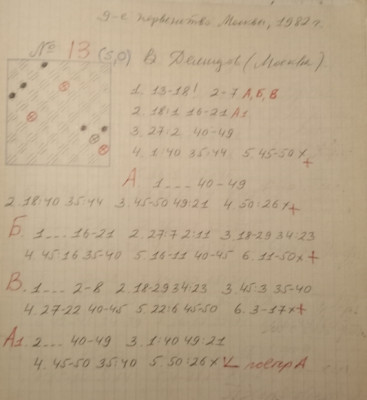 9-е первенство Москвы, 1982 г.
№ 13 (5,0) В Делицов (Москва).
1. 13-18! 2-7 А, Б, В
2. 18:1 16-21 А1
3. 27:2 40-49
4. 1:40 35:44 5. 45-50х+
А 1 ... 40-49
2. 18:40 35:44 3. 45-50 49:21 4. 50:26х+
Б. 1 ... 16-21 2. 27:7 2:11 3. 18-29 34:23
4. 45:16 35-40 5. 16-11 40-45 6. 11-50х+
В. 1 ... 2-8 2. 18-29 34:23 3. 45:3 35-40
4. 27-22 40-45 5. 22:6 45-50 6. 3-17х+
А1 2 ... 40-49 3. 1:40 49:21
4. 45-50 35:40 5. 50:26х повтор А